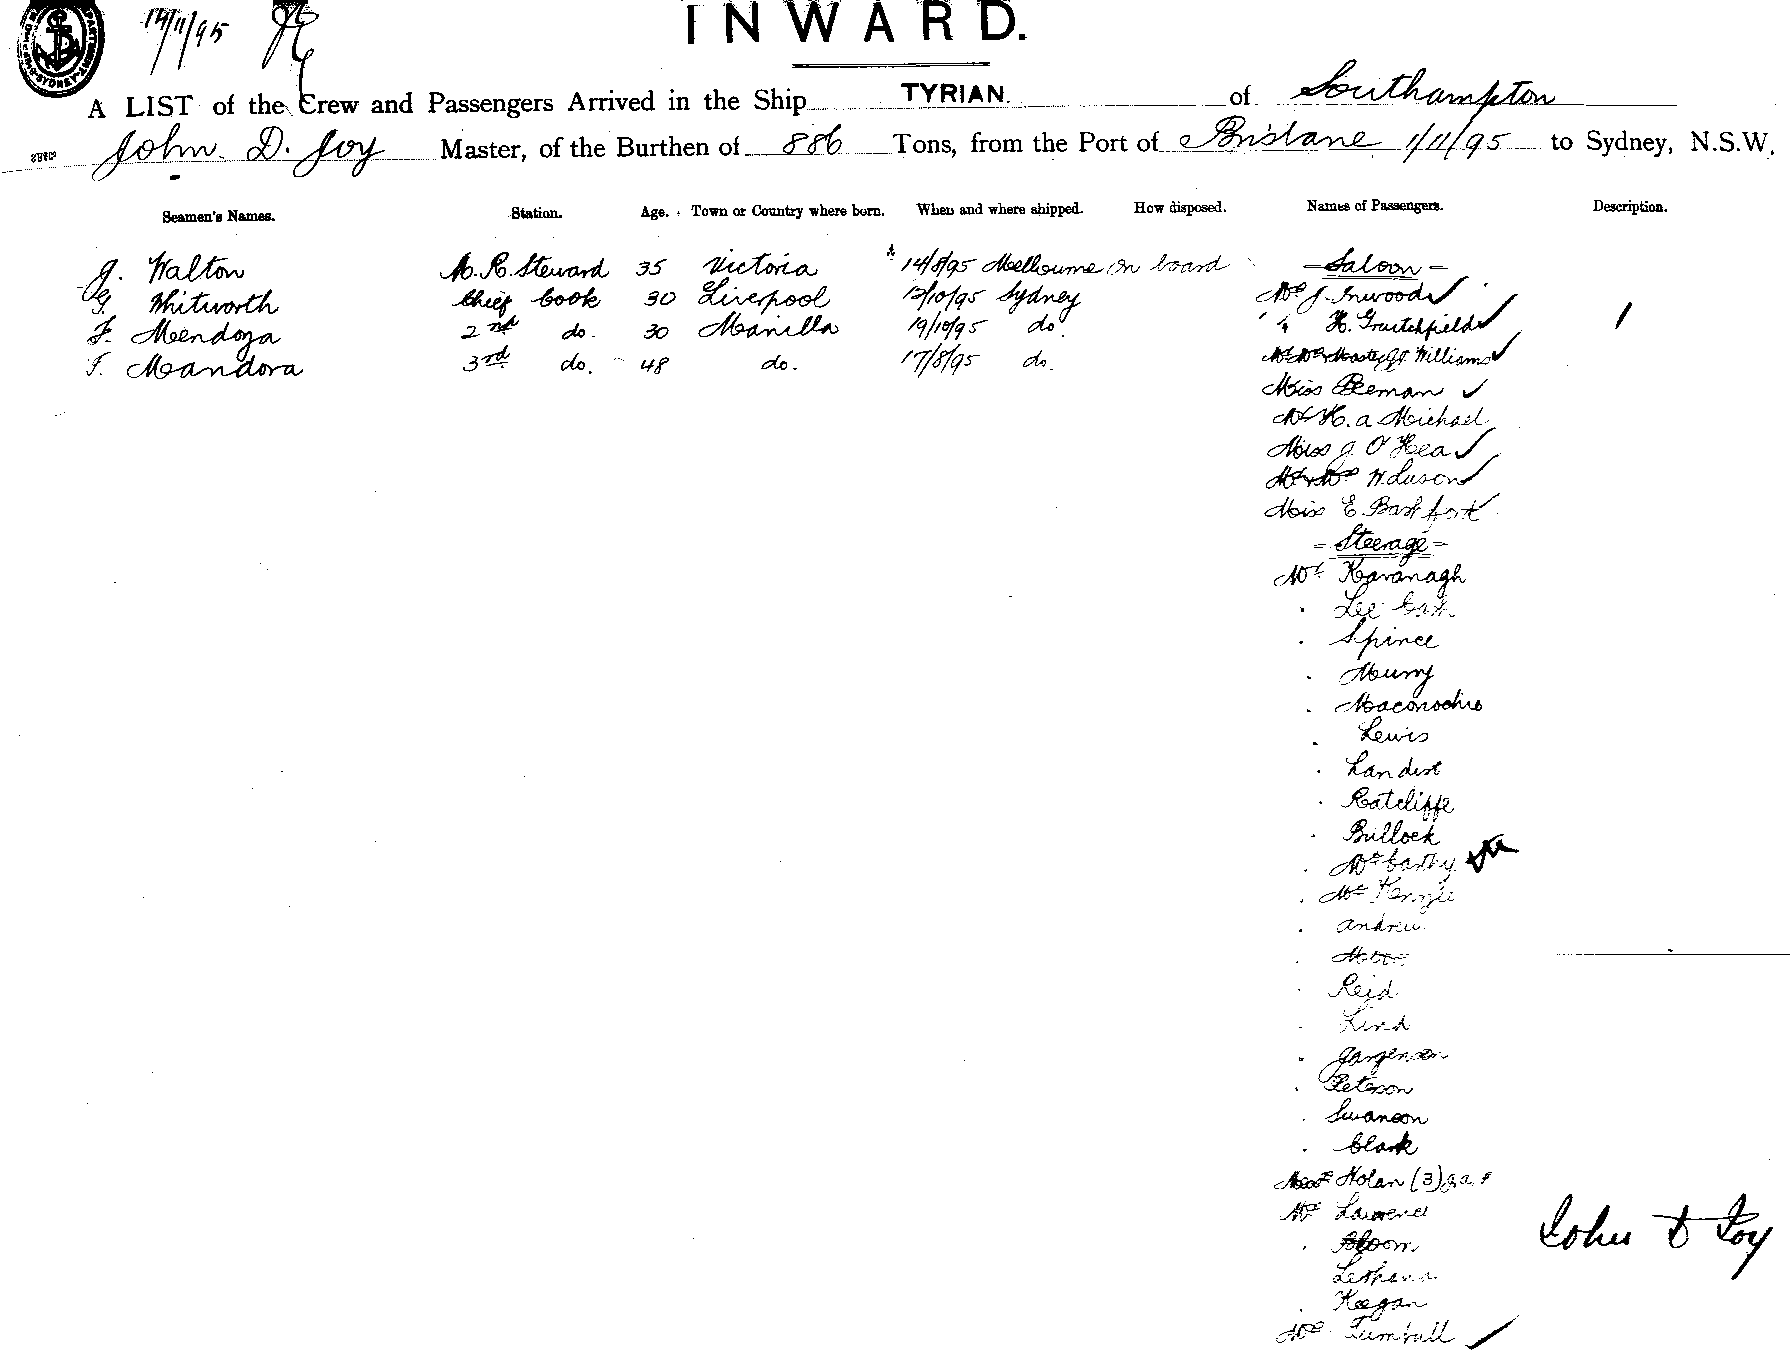 14/11/95
INWARD.
A LIST of the Crew and Passengers Arrived in the Ship TYRIAN. of Southampton
John. D. Joy Master, of the Burthen of 886 Tons, from the Port of Brisbane 1/11/95 to Sydney, N.S.W.
Seamen's Names. Station. Age. Town or Country where born. When and where shipped. How disposed. Names of Passengers. Description.
J. Walton M.R. Steward 35 Victoria 14/8/95 Melbourne On board - Saloon -
G. Whitworth Chief Cook 30 Liverpool 12/10/95 Sydney Mrs J. Inwood
F. Mendoza 2nd do. 30 Manilla 19/10/95 do. " H. Grutchfield
T. Mandora 3rd do. 48 do. 17/8/95 do. Williams
Miss Peeman
Mr H. A Michael
Miss J O'Hea
Mr & Mrs W. Luson
Miss E Bashfort
- Steerage -
Mr Kavanagh
Lee
Spince
Murry
Maconochie
Lewis
Landist
Ratcliffe
Bullock
McCarthy
McKenzie
Andrew
Reid
Lind
Jorgensen
Peterson
Swanson
Clark
Nolan (3)
Mr Lawrence
Bloom
Keegan
Mrs Turnbull
John D Joy